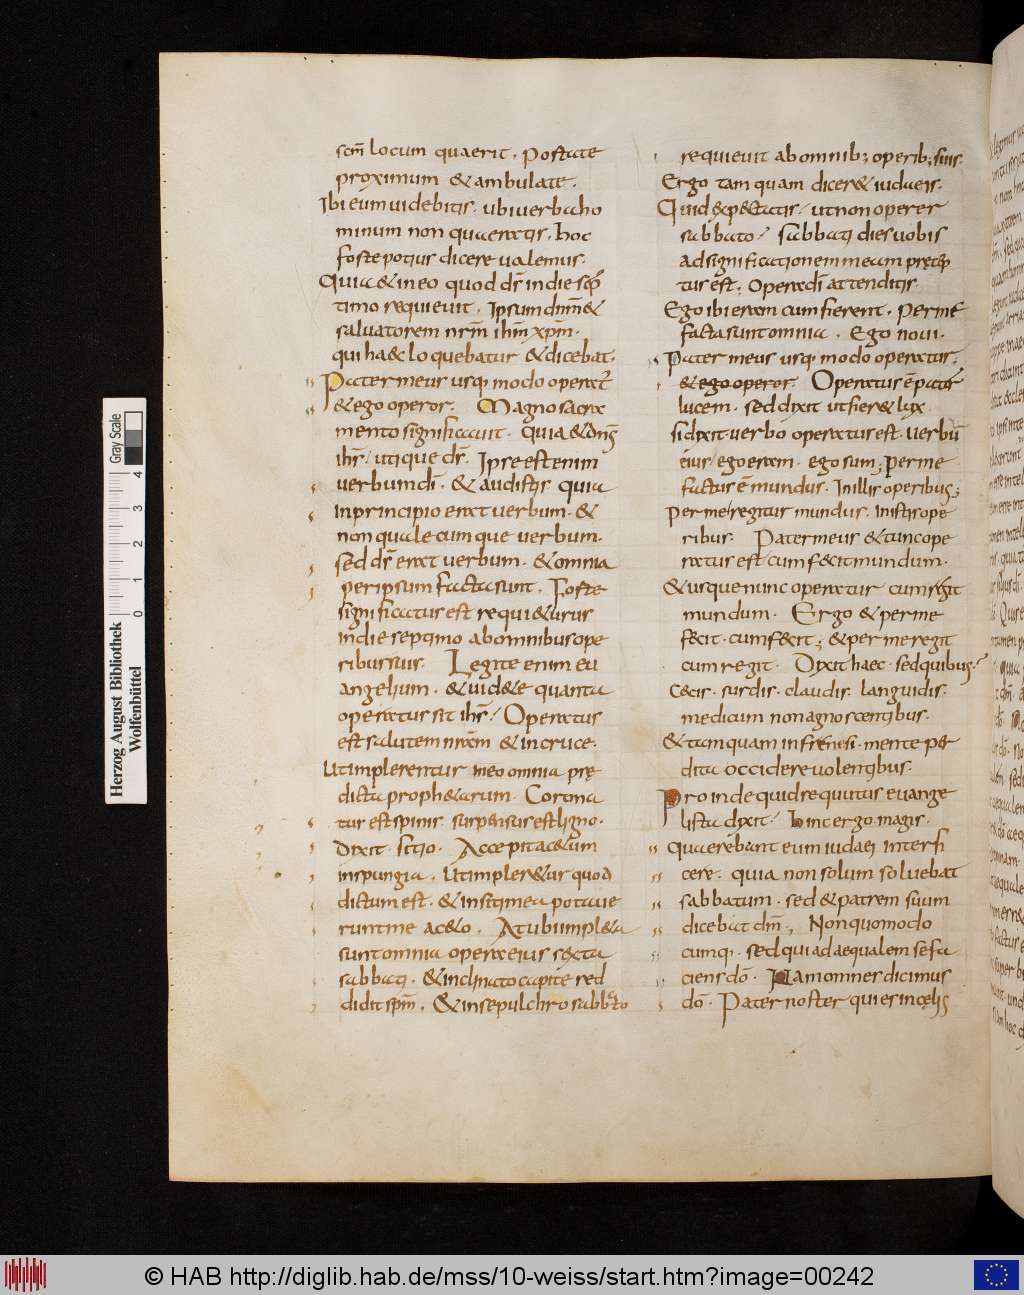 scm̄ locum quaerit. Portate
proximum & ambulate.
Ibi eum uidebitis. ubi uerba ho
minum non quaeratis. hoc
forte potius dicere ualemus.
Quia & in eo quod dr̄ in die sep
timo requieuit. Ipsum dnm̄ &
saluatorem nrm̄ ihm̄ xpm̄.
qui haec loquebatur & dicebat.
Pater meus usq; modo operat̄
& ego operor. Magno sacra
mento significauit. quia & dn̄s
ihs̄ / utique ds̄. Ipse est enim
uerbum dī. & audistis quia
in principio erat uerbum. &
non qualecumque uerbum.
sed ds̄ erat uerbum. & omnia
per ipsum facta sunt. Forte
significatus est requi&urus
in die septimo ab omnibus ope
ribus suis. Legite enim eu
angelium. & uid&e quanta
operatus sit ihs̄ / Operatus
est salutem nram̄ & in cruce.
Ut implerentur in eo omnia prę
dicta proph&arum. Corona
tus est spinis. suspensus est ligno.
Dixit. sitio. Accepit ac&um
in spungia. Ut impler&ur quod
dictum est. & in siti mea potaue
runt me ac&o. At ubi impl&a
sunt omnia opera eius sexta
sabbati. & inclinato capite red
didit spm̄. & in sepulchro sabbato
requieuit ab omnib; operib; suis.
Ergo tamquam dicer& iudaeis.
Quid exp&atis / ut non operer
sabbato / sabbati dies uobis
ad significationem meam pręcep
tus est; Opera dī attenditis.
Ego ibi eram cum fierent. per me
facta sunt omnia. Ego noui.
Pater meus usq; modo operatur;
& ego operor. Operatus ē pater
lucem. sed dixit ut fier& lux
si dixit uerbo operatus est. uerbū
eius / ego eram. ego sum; per me
factus ē mundus. In illis operibus;
per me / regitur mundus. in istis ope
ribus. Pater meus & tunc ope
ratus est cum fecit mundum.
& usque nunc operatur cum regit
mundum. Ergo & per me
fecit. cum fecit; & per me regit
cum regit. Dixit haec. sed quibus /
caecis. surdis. claudis. languidis.
medicum non agnoscentibus.
& tamquam in frenesi. mente per
dita occidere uolentibus.
Proinde quid requutus euange
lista dixit / hinc ergo magis.
quaerebant eum iudaei interfi
cere. quia non solum soluebat
sabbatum. sed & patrem suum
dicebat dm̄; Non quomodo
cumq;. sed qui ad aequalem se fa
ciens dō. Nam omnes dicimus
dō. Pater noster qui es in cęlis
Herzog August Bibliothek
Wolfenbüttel
0 1 2 3 4
Gray Scale
© HAB http://diglib.hab.de/mss/10-weiss/start.htm?image=00242